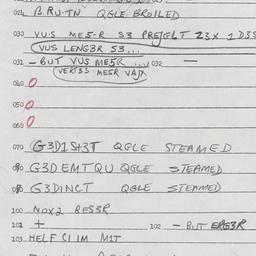 024 B RU·TN QGLE BROILED
030 VUS MES·R S3 PREJELT 23X 1 D3S
(VUS LENG3R S3...
031 – BUT VUS MESR 032 —
(VERT3S MESR VAJX
040 0
050 0
060 0
070 G3D1S+3T QGLE STEAMED
080 G3DEMTQU QGLE STEAMED
G3DINCT QGLE STEAMED
100 NOX2 RES3R
101 + 102 – BUT ERG3R
103 HELF CLIM M1T